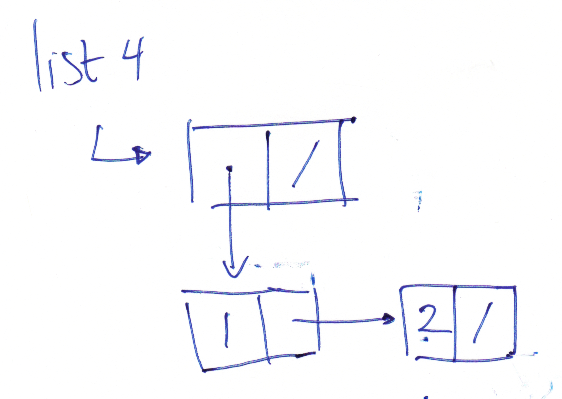 list 4
/
1 2 /